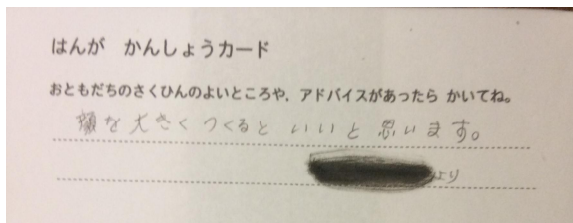 はんが　かんしょうカード
おともだちのさくひんのよいところや、アドバイスがあったら かいてね。
顔を大きくつくるといいと思います。
より